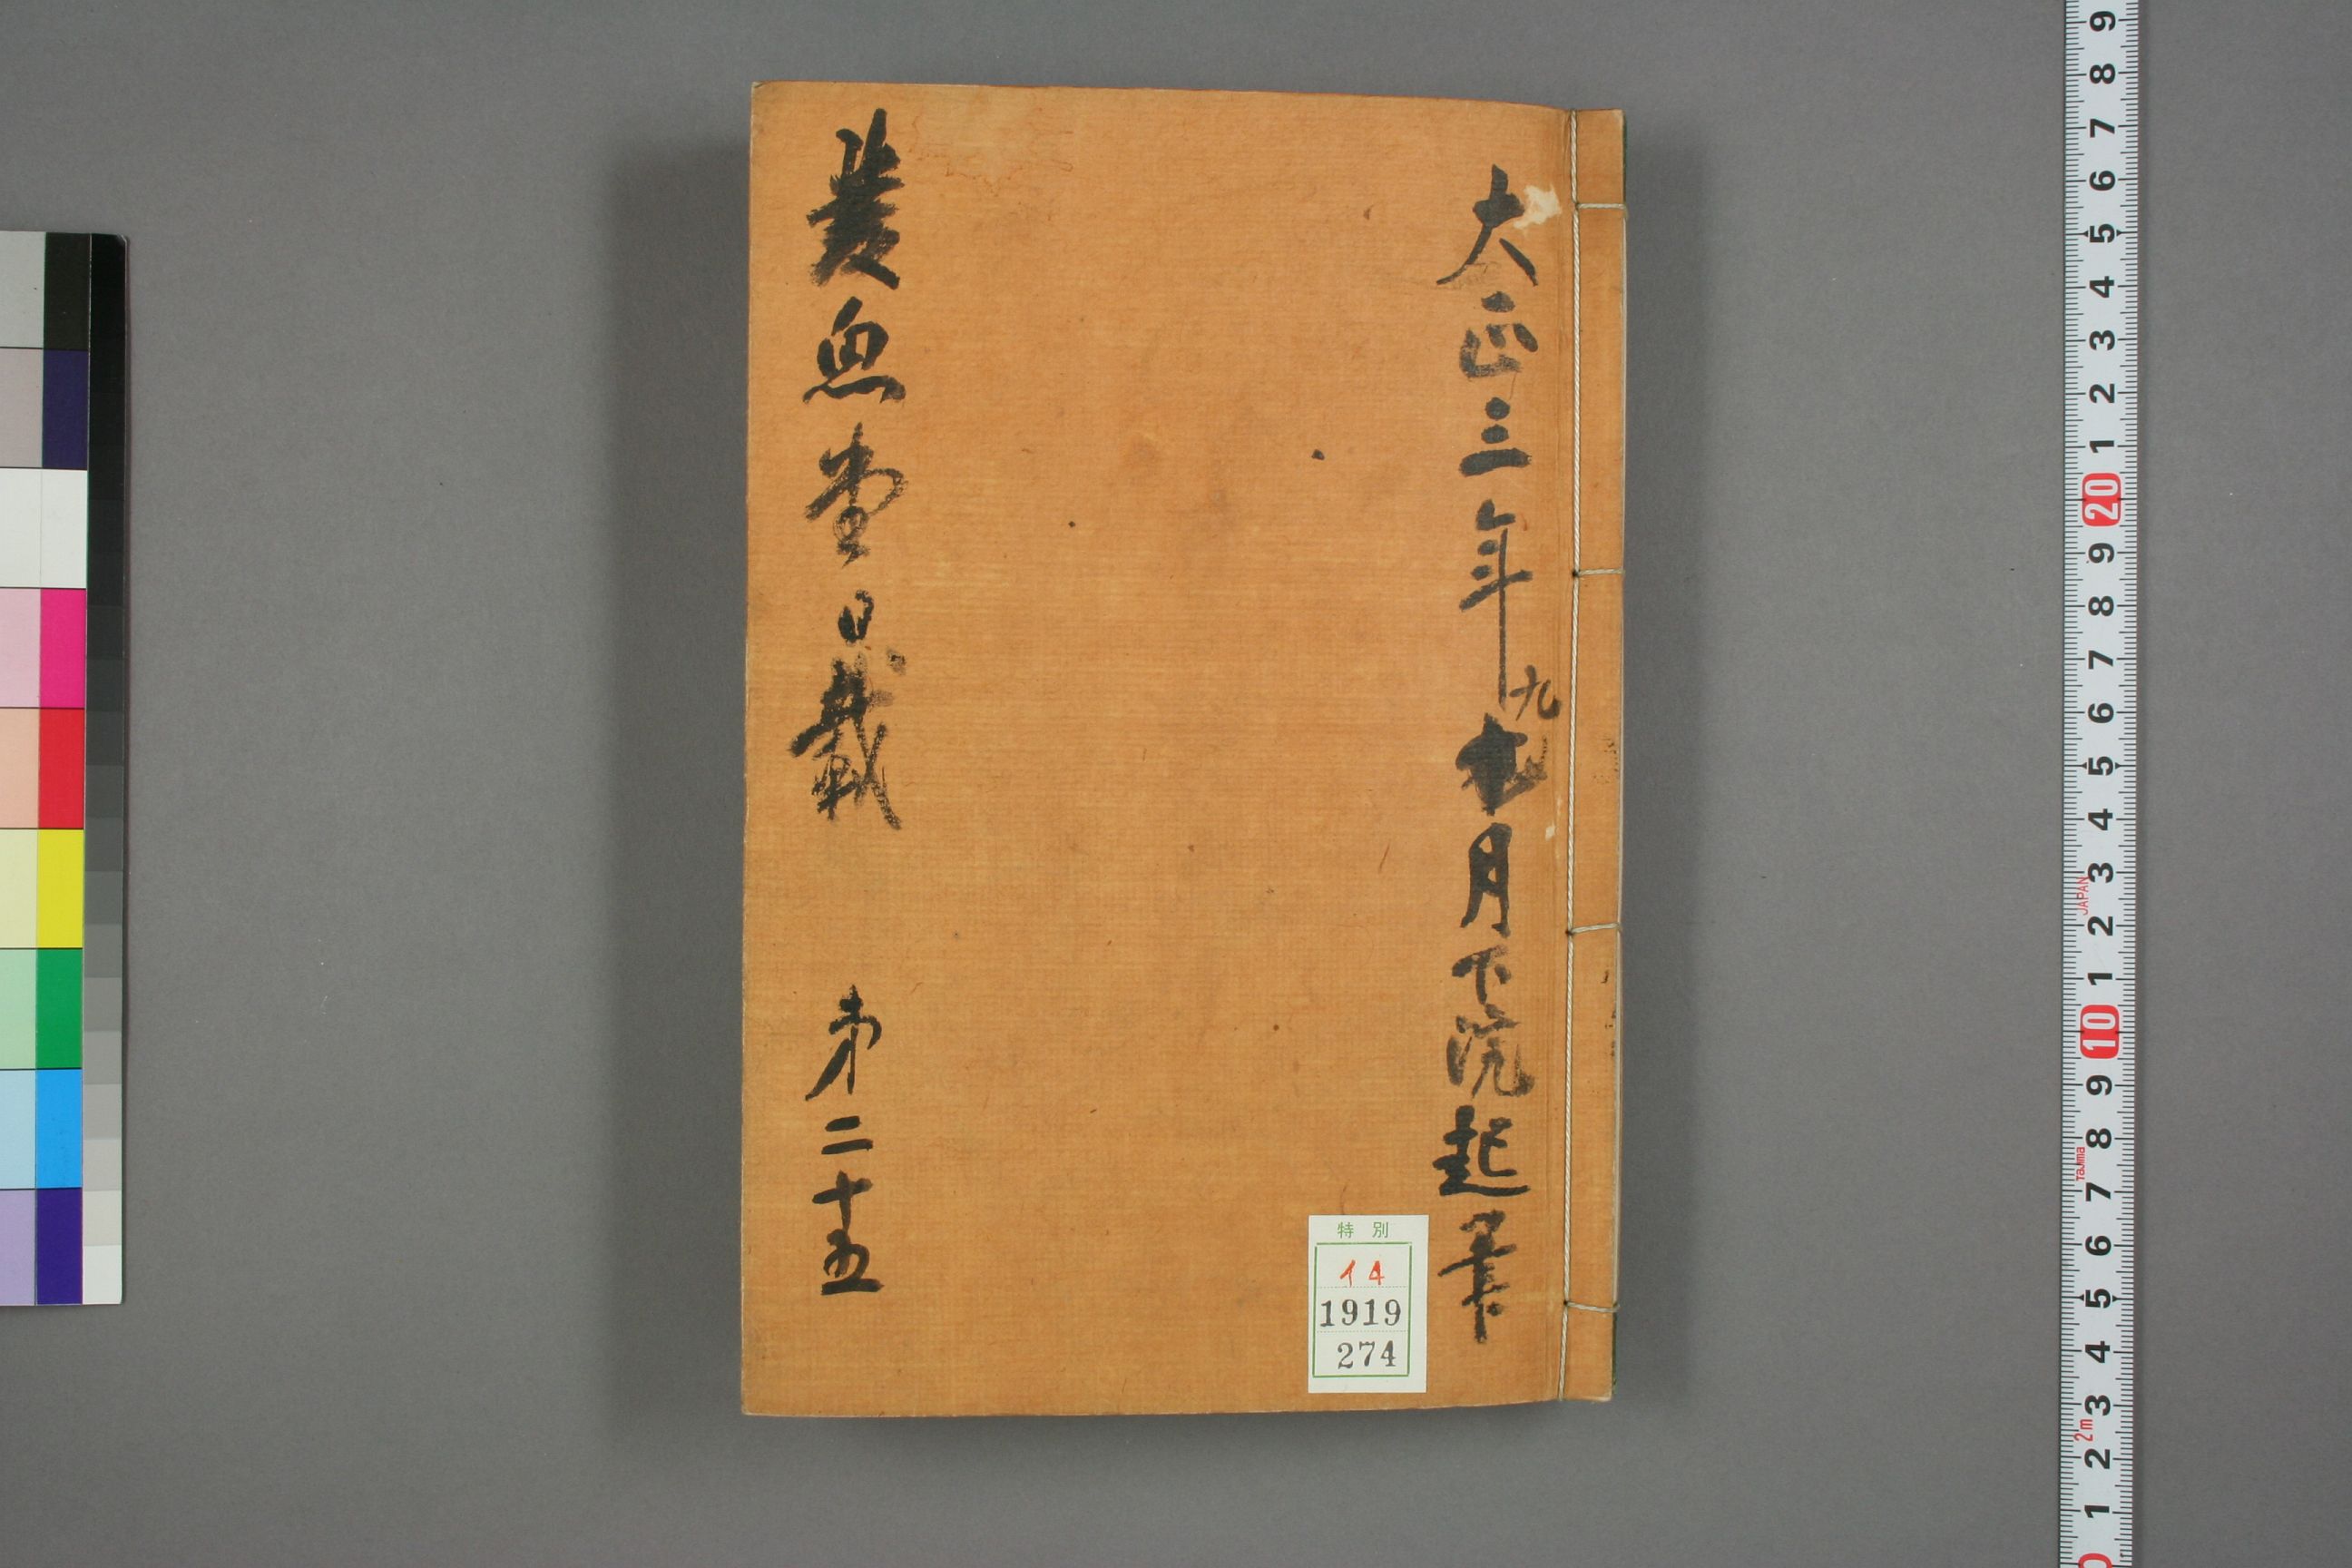 大正三年九月下浣起筆
雙魚堂日載 第二十五
特別
イ4
1919
274
9 8 7 6 5 4 3 2 1 20 9 8 7 6 5 4 3 2 1 10 9 8 7 6 5 4 3 2 1 0
JAPAN
Tajima
2m